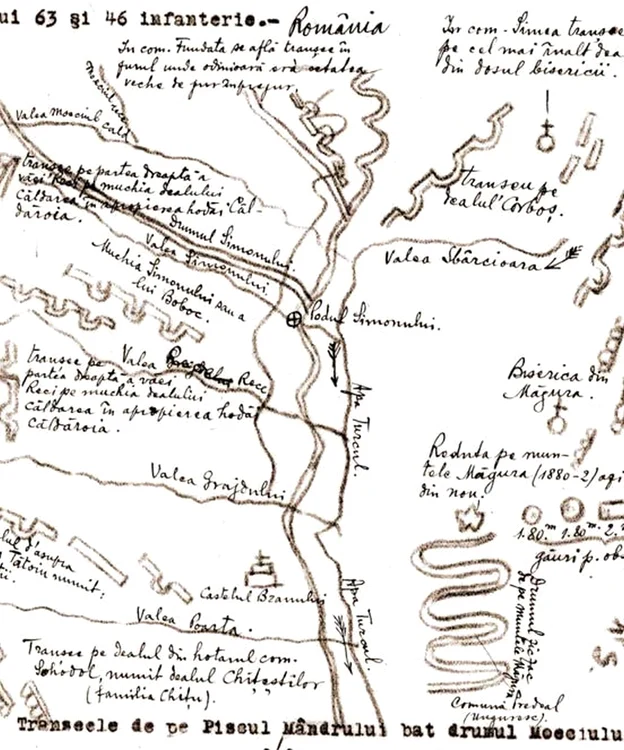 ui 63 şi 46 infanterie.-
România
In com. Fundata se află tranșee în
jurul unde odinioară era cetatea
veche de
In com. Simea tranșee
pe cel mai înalt dea
din dosul bisericii.
Valea Moeciul cald
tranșee pe partea dreaptă a
văei Reci pe muchia dealului
Căldarea în apropierea hodăi Căl-
dăroia.
Drumul Simonului.
Valea Simonului.
Muchia Simonului sau a
lui Boboc.
tranșeu pe
dealul Corboș.
Valea Sbârcioara
Podul Simonului.
Apa Turcul.
tranșee pe
partea dreaptă a văei
Reci pe muchia dealului
Căldarea în apropierea hodăi
Căldăroia.
Valea
Rece
Biserica din
Măgura.
Reduta pe mun-
tele Măgura (1880-2) azi
din nou.
1.80.m 1.80m. 2.
găuri p. ob
Valea Grajdului
lul d'asupra
Tătoiu numit:
Castelul Branului
Valea Poarta.
Apa Turcul.
Drumul zic zac
de pe muntele Măgura
Tranșee pe dealul din hotarul com.
Sohodol, numit dealul Chițeștilor
(familia Chițu).
Comuna Predeal
(unguresc).
Transeele de pe Piscul Mândrului bat drumul Moeciulu